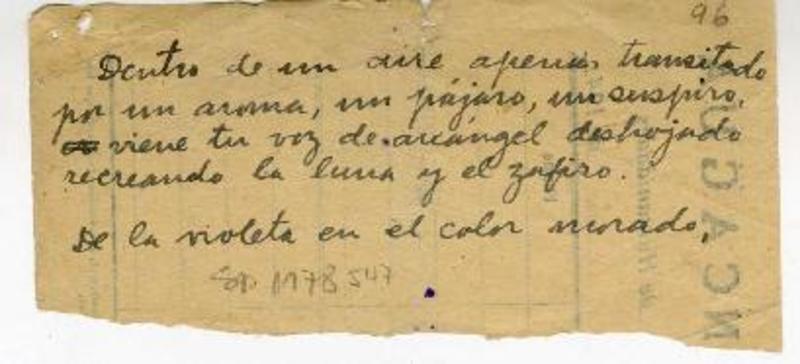 96
Dentro de un aire apenas transitado
por un aroma, un pájaro, un suspiro,
viene tu voz de arcángel deshojado
recreando la luna y el zafiro.
De la violeta en el color morado,
547